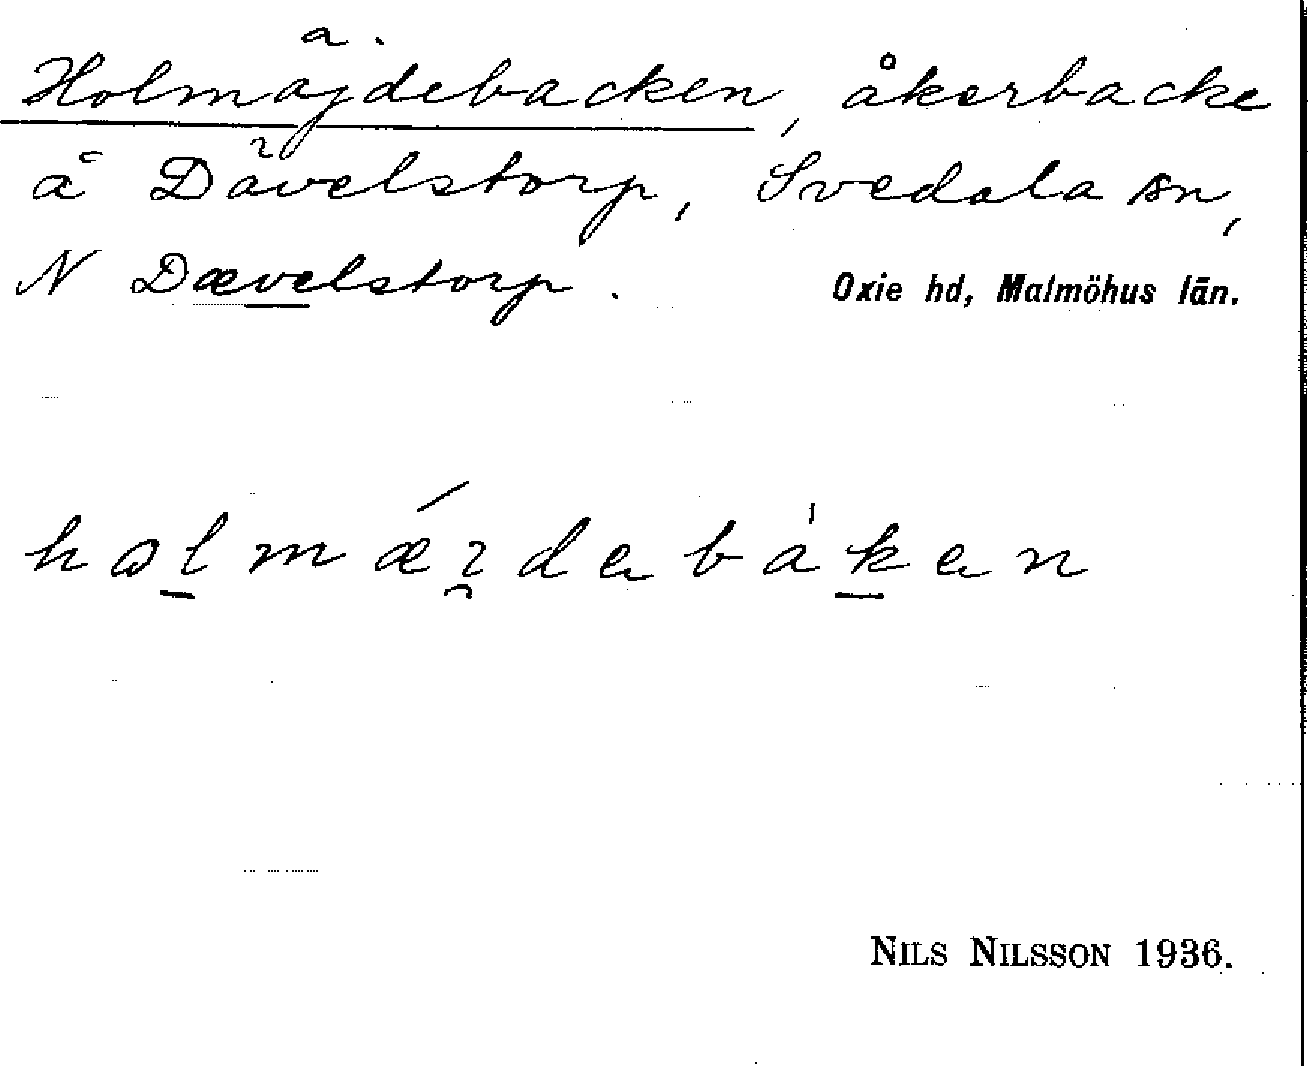 Holmäjdebacken, åkerbacke
å Dävelstorp, Svedala sn,
N Dævelstorp.
Oxie hd, Malmöhus län.
NILS NILSSON 1936.